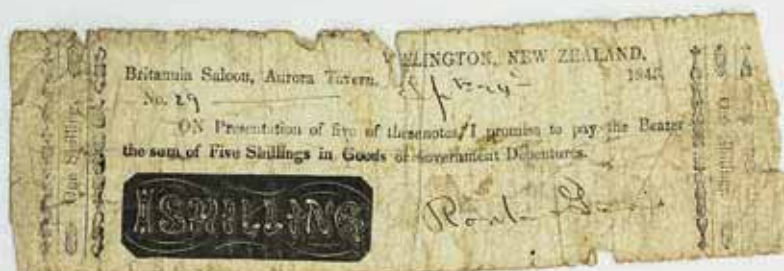 WELLINGTON, NEW ZEALAND,
Britannia Saloon, Aurora Tavern. 184
No. 29
ON Presentation of five of these notes, I promise to pay the Bearer
the sum of Five Shillings in Goods or Government Debentures.
1 SHILLING
One Shilling.
One Shilling